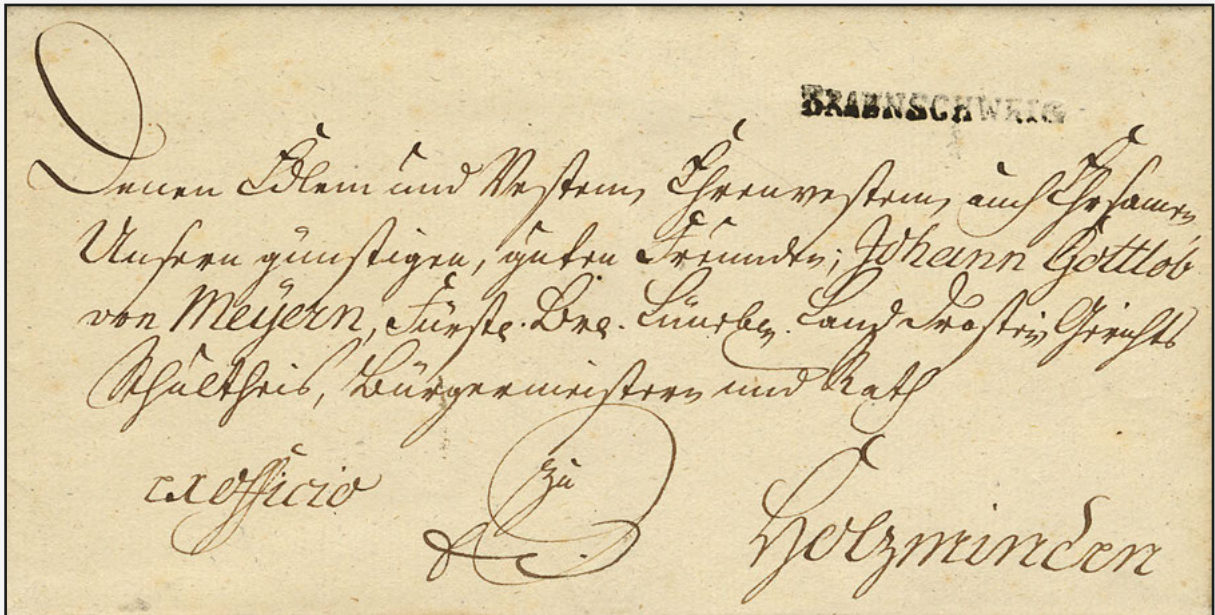 BRAUNSCHWEIG
Denen Edlem und Vestem, Ehrenvestem, auch Ehrsamen,
Unsern günstigen, guten Freunden; Johann Gottlob
von Meÿern, Fürstl. Lüneb. Land Drosten, Gerichts
Schultheis, Bürgermeistern und Rath
ex officio
zu
Holzminden